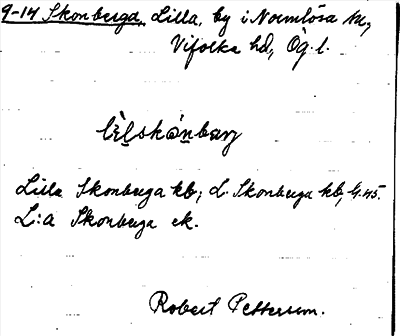 9-14 Skonberga, Lilla, by i Normlösa sn,
Vifolka hd, Ög. l.
Lilla Skonberga kb; L. Skonberga kb, G.45.
L:a Skonberga ek.
Robert Pettersson.